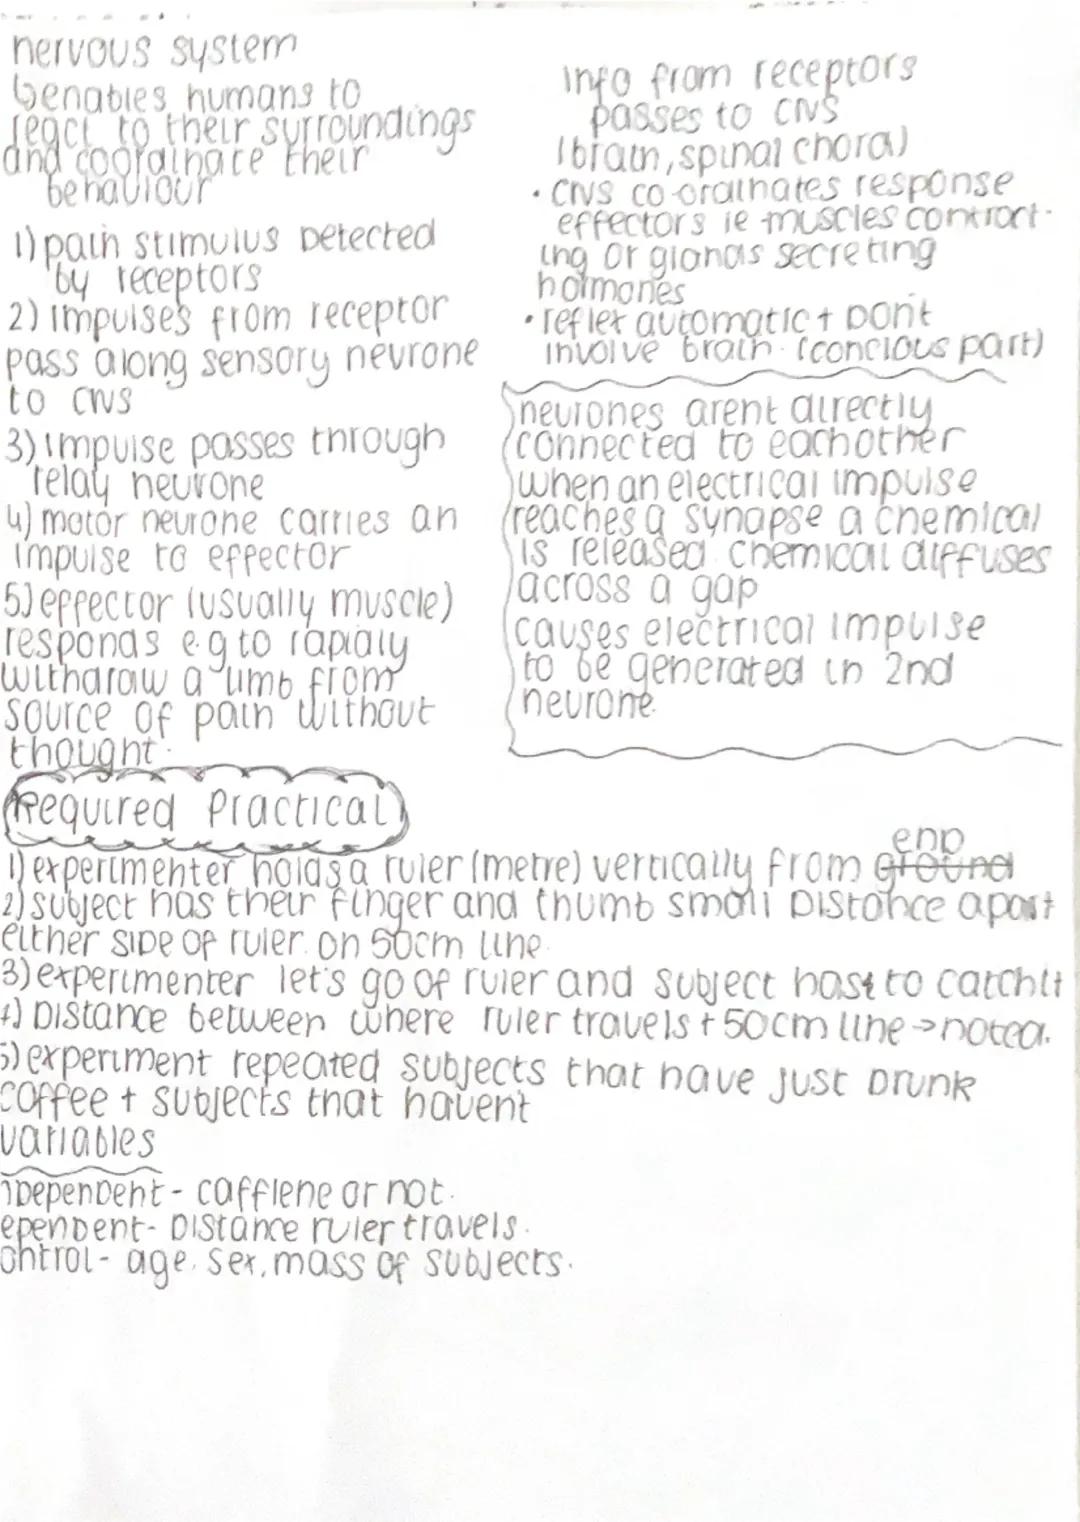 nervous system
↳enables humans to
react to their surroundings
and coordinate their
behaviour
1) pain stimulus Detected
by receptors
2) impulses from receptor
pass along sensory neurone
to CNS
3) impulse passes through
relay neurone
4) motor neurone carries an
impulse to effector
5) effector (usually muscle)
responds e.g to rapidly
withdraw a limb from
source of pain without
thought.
Info from receptors
passes to CNS
(brain, spinal chord)
• CNS co-ordinates response
effectors ie muscles contract-
ing or glands secreting
hormones
• reflex automatic + Don't
involve brain. (concious part)
neurones arent directly
connected to eachother
when an electrical impulse
reaches a synapse a chemical
is released. chemical diffuses
across a gap
causes electrical impulse
to be generated in 2nd
neurone.
Required Practical
end
1) experimenter holds a ruler (metre) vertically from ground
2) subject has their finger and thumb small Distance apart
either side of ruler. on 50cm line.
3) experimenter let's go of ruler and subject has to catch it
4) Distance between where ruler travels + 50cm line → noted.
5) experiment repeated subjects that have just Drunk
coffee + subjects that havent
variables
idependent - caffiene or not.
ependent - Distance ruler travels.
ontrol - age. sex, mass of subjects.